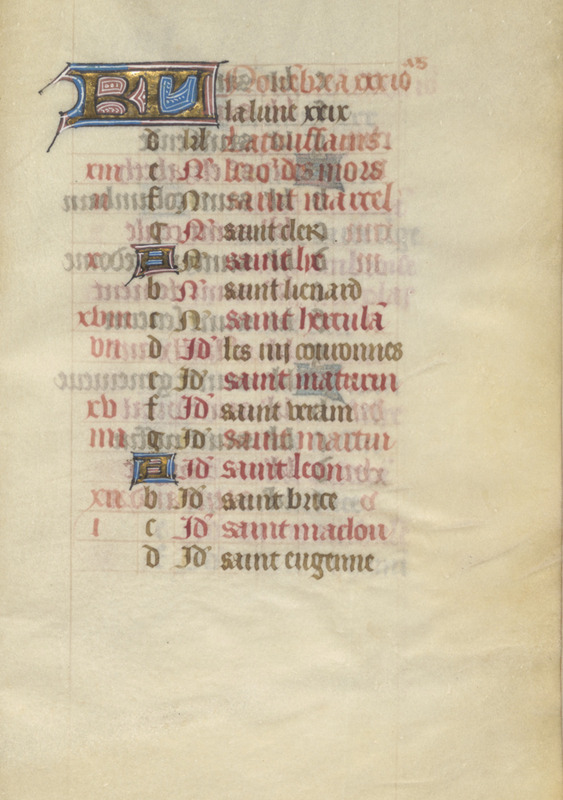 KL Novēbꝛ a xxx io
la lune xxix
d kl la toussains
xiii e N' le io² des mors
ii f N' saint marcel
g N' saint cler
x A N saint
b N' saint lienard
xviii c N saint herculā
vii d Id' les iiii couronnes
e Id' saint maturin
xv f Id' saint veram
iiii g Id' saint martin
A Id' saint leon
xii b Id' saint brice
i c Id' saint maclou
d Id' saint eugenne